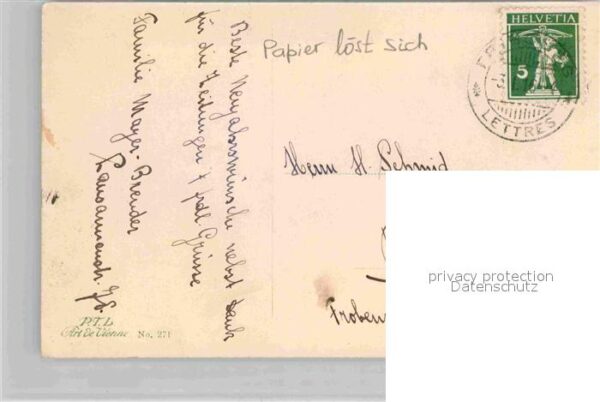 Beste Neujahrswünsche nebst Dank
für die Zeitungen & frdl. Grüsse
Familie Mayer-Brender
Lausannerstr.
Papier löst sich
HELVETIA
5
LETTRES
Herrn H. Schmid
Froben
privacy protection
Datenschutz
P.T.L.
Art de Vienne No. 271